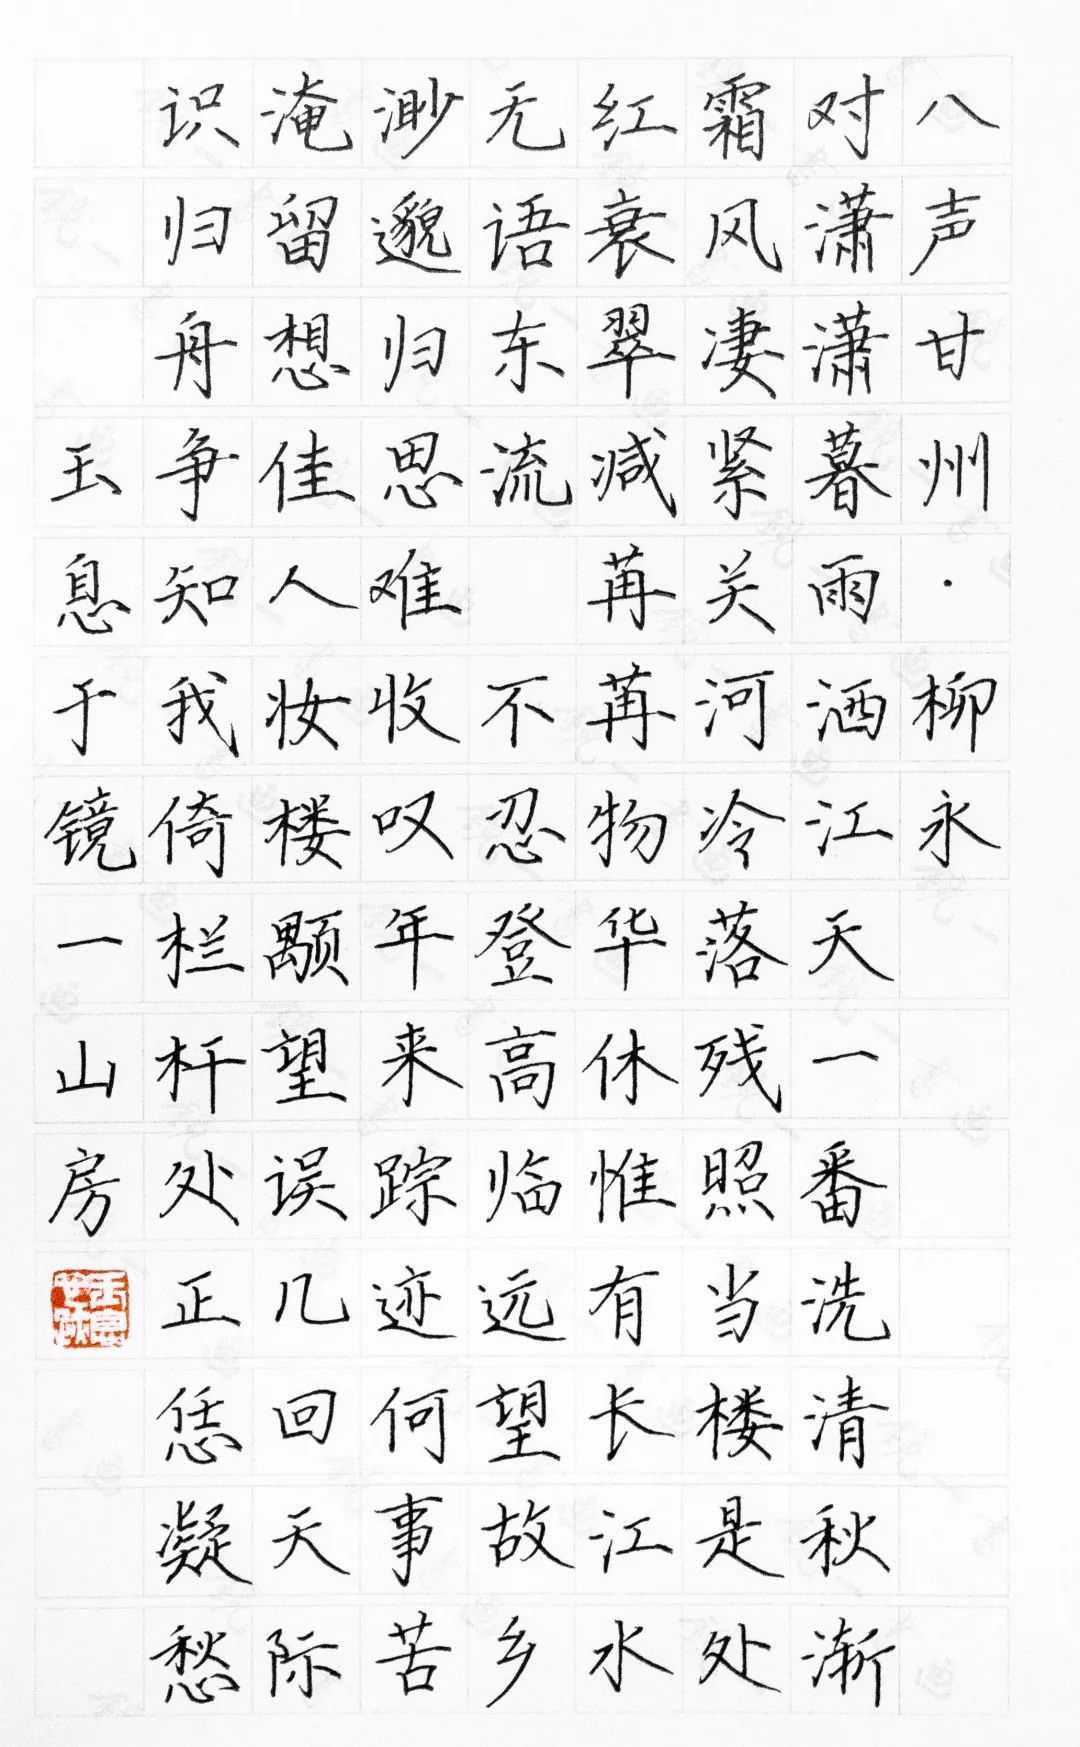 八声甘州·柳永
对潇潇暮雨洒江天一番洗清秋渐
霜风凄紧关河冷落残照当楼是处
红衰翠减苒苒物华休惟有长江水
无语东流 不忍登高临远望故乡
渺邈归思难收叹年来踪迹何事苦
淹留想佳人妆楼颙望误几回天际
识归舟争知我倚栏杆处正恁凝愁
玉息于镜一山房